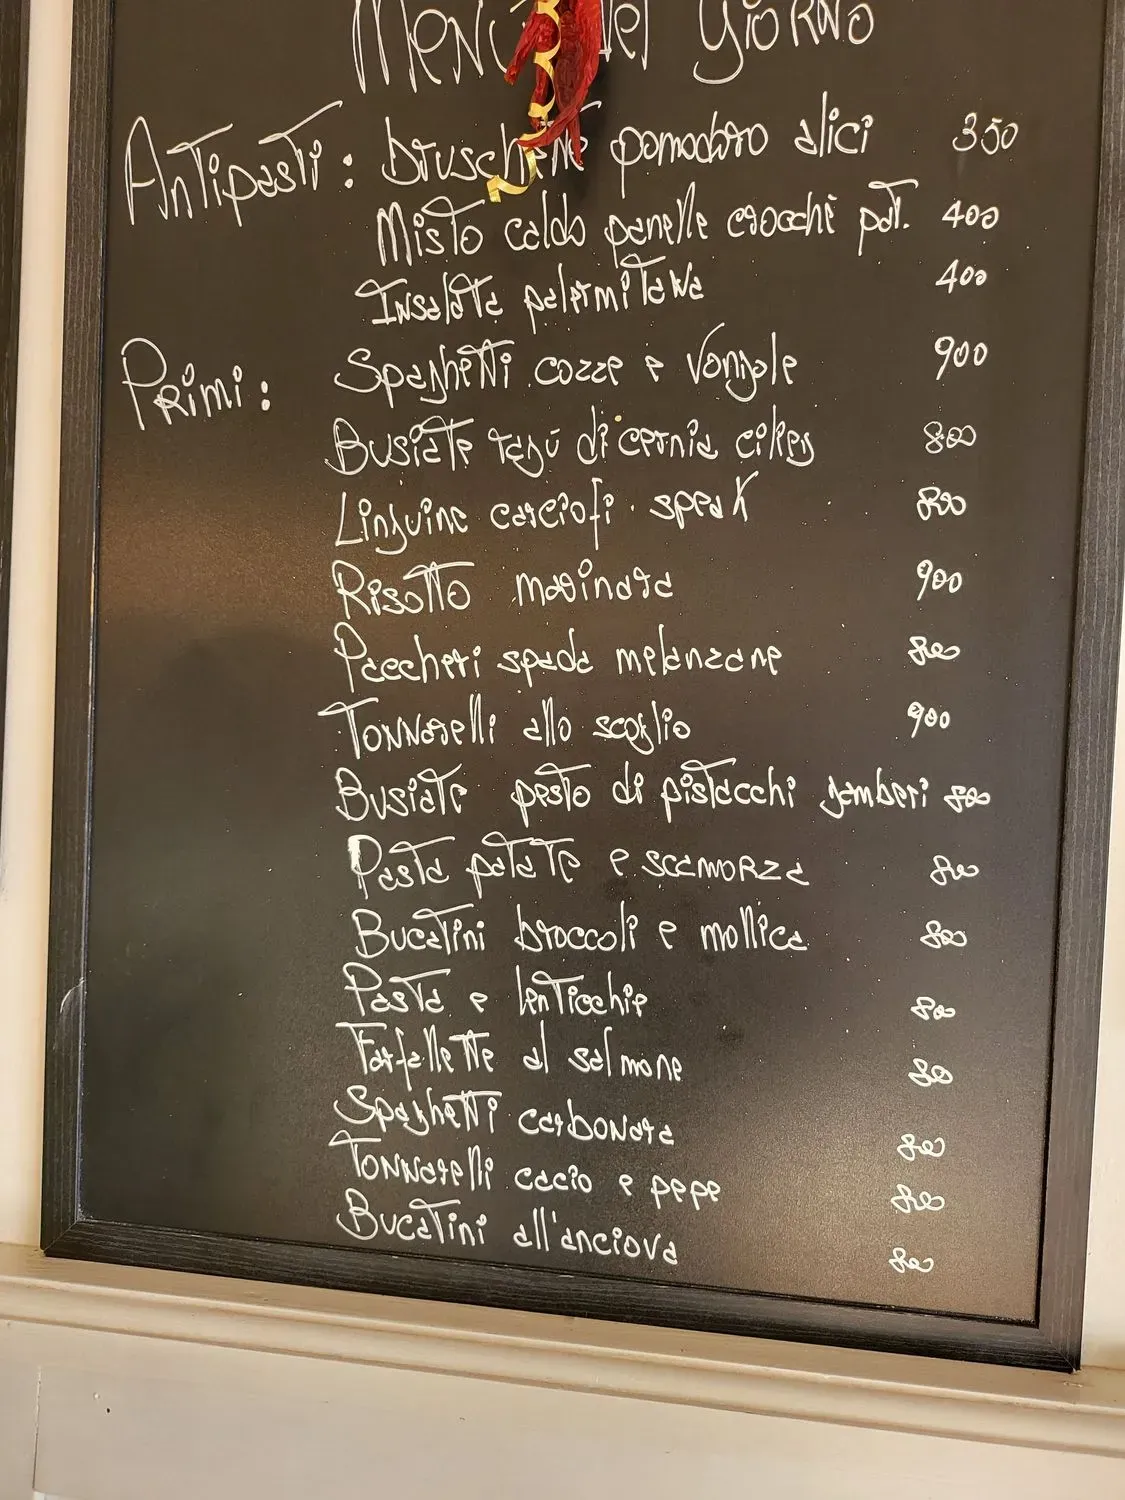 Menù del giorno
Antipasti: bruschette pomodoro alici 350
Misto caldo panelle crocchè pat. 400
Insalata palermitana 400
Primi: Spaghetti cozze e vongole 900
Busiate ragù di cernia 800
Linguine carciofi speak 800
Risotto marinara 900
Paccheri spada melanzane 800
Tonnarelli allo scoglio 900
Busiate pesto di pistacchi gamberi 800
Pasta patate e scamorza 800
Bucatini broccoli e mollica 800
Pasta e lenticchie 800
Farfallette al salmone 800
Spaghetti carbonara 800
Tonnarelli cacio e pepe 800
Bucatini all'anciova 800